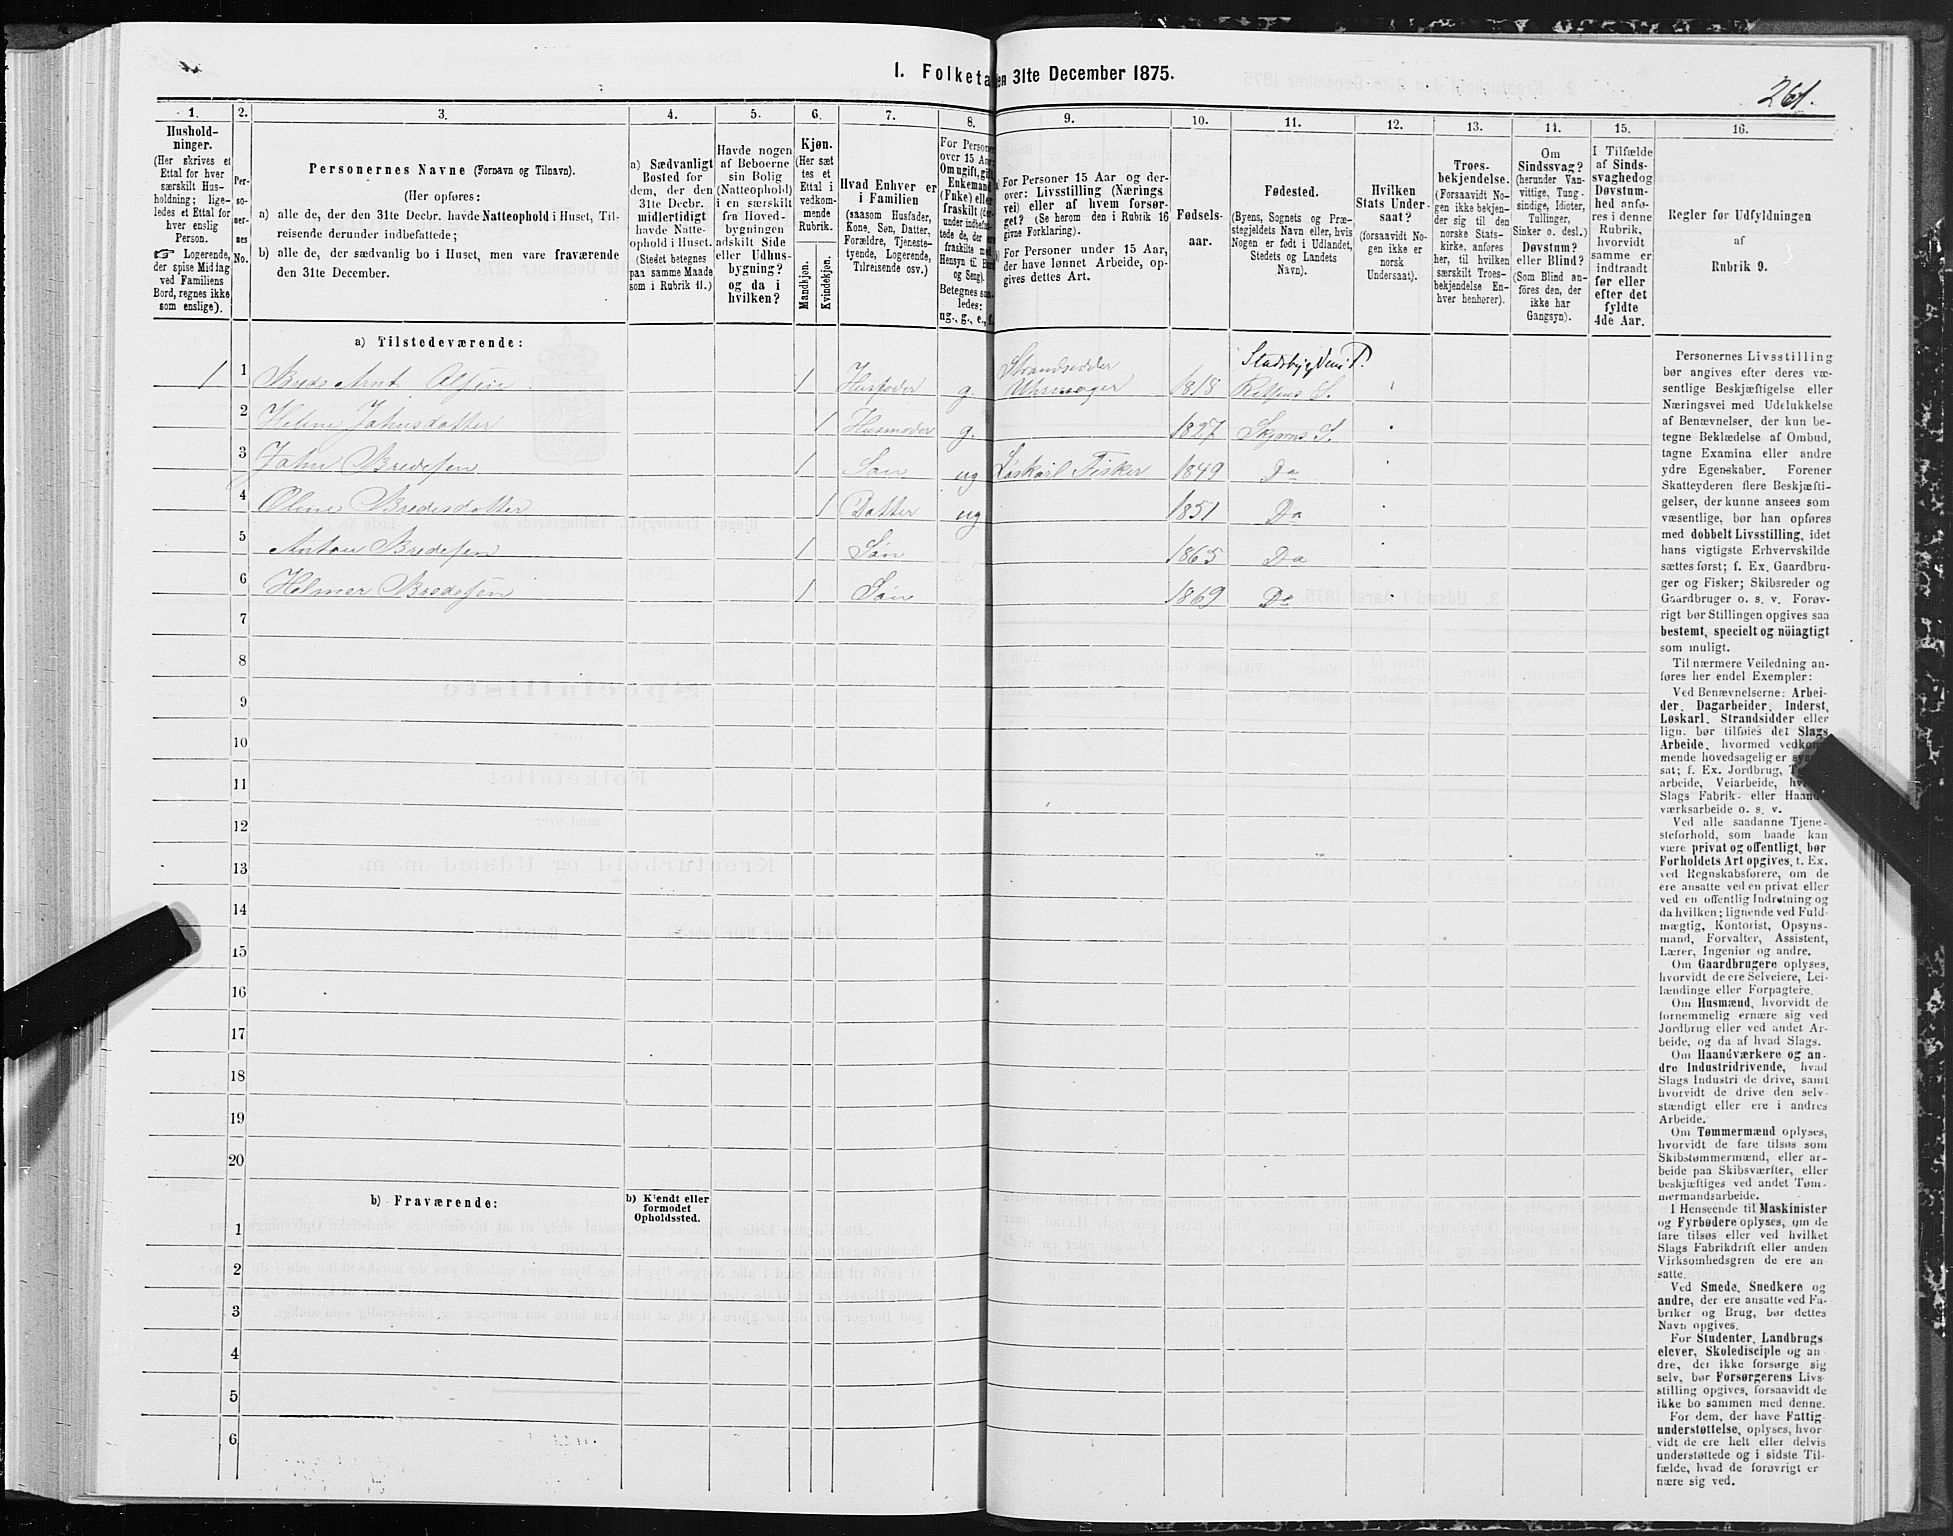 I. Folketa en 31te December 1875.
261.
1.
Hushold-
ninger.
(Her skrives et
Ettal for hver
særskilt Hus-
holdning; lige-
ledes et Ettal for
hver enslig
Person.
☞ Logerende,
der spise Middag
ved Familiens
Bord, regnes ikke
som enslige).
2.
Per-
so-
ner-
nes
No.
3.
Personernes Navne (Fornavn og Tilnavn).
(Her opføres:
a) alle de, der den 31te Decbr. havde Natteophold i Huset, Til-
reisende derunder indbefattede;
b) alle de, der sædvanlig bo i Huset, men vare fraværende
den 31te December.
4.
a) Sædvanligt
Bosted for
dem, der den
31te Decbr.
midlertidigt
havde Natte-
ophold i Huset.
(Stedet betegnes
paa samme Maade
som i Rubrik 11.)
5.
Havde nogen
af Beboerne
sin Bolig
(Natteophold)
i en særskilt
fra Hoved-
bygningen
adskilt Side
eller Udhus-
bygning?
og da i
hvilken?
6.
Kjøn.
(Her sæt
tes et
Ettal i
vedkom-
mende
Rubrik.
Mandkjøn.
Kvindekjøn.
7.
Hvad Enhver er
i Familien
(saasom Husfader,
Kone, Søn, Datter,
Forældre, Tjeneste-
tyende, Logerende,
Tilreisende osv.)
8.
For Persone
over 15 Aar
Om ugift, gift
Enkemand
(Enke) eller
fraskilt
Betegnes saa-
ledes:
ug., g., e., f.
9.
For Personer 15 Aar og der-
over: Livsstilling (Nærings
vei) eller af hvem forsør-
get? (Se herom den i Rubrik 16
givne Forklaring).
For Personer under 15 Aar,
der have lønnet Arbeide, op-
gives dettes Art.
10.
Fødsels-
aar.
11.
Fødested.
(Byens, Sognets og Præ-
stegjeldets Navn eller, hvis
Nogen er født i Udlandet,
Stedets og Landets
Navn).
12.
Hvilken
Stats Under-
saat?
(forsaavidt No-
gen ikke er
norsk
Undersaat).
13.
Troes-
bekjendelse.
(Forsaavidt No-
gen ikke bekjen-
der sig til den
norske Stats-
kirke, anføres
her, til hvilken
særskilt Troes-
bekjendelse En-
hver henhører).
14.
Om
Sindssvag?
(herunder Van-
vittige, Tung-
sindige, Idioter,
Tullinger,
Sinker o. desl.)
Døvstum?
eller Blind?
(Som Blind an-
føres den, der
ikke har
Gangsyn).
15.
I Tilfælde
af Sinds-
svaghed og
Døvstum-
hed anfø-
res i denne
Rubrik,
hvorvidt
samme er
indtraadt
før eller
efter det
fyldte
4de Aar.
16.
Regler for Udfyldningen
af
Rubrik 9.
a) Tilstedeværende:
1 1 Brede Arnt Olsen 1 Husfader g. Strandsidder Uhrmager 1818 Stadsbygdens P. Rissens S.
2 Helene Jahnsdatter 1 Husmoder g. 1827 Skjørns S.
3 Jahn Bredesen 1 Søn ug Løskarl Fisker 1849 Do
4 Oline Bredesdatter 1 Datter ug 1851 Do
5 Anton Bredesen 1 Søn 1865 Do
6 Helmer Bredesen 1 Søn 1869 Do
7
8
9
10
11
12
13
14
15
16
17
18
19
20
b) Fraværende:
b) Kjendt eller
formodet
Opholdssted.
1
2
3
4
5
6
Personernes Livsstilling
bør angives efter deres væ-
sentlige Beskjæftigelse eller
Næringsvei med Udelukkelse
af Benævnelser, der kun be-
tegne Beklædelse af Ombud,
tagne Examina eller andre
ydre Egenskaber. Forener
Skatteyderen flere Beskjæfti-
gelser, der kunne ansees som
væsentlige, bør han opføres
med dobbelt Livsstilling, idet
hans vigtigste Erhvervskilde
sættes først; f. Ex. Gaardbru-
ger og Fisker; Skibsreder og
Gaardbruger o. s. v. Forøv-
rigt bør Stillingen opgives saa
bestemt, specielt og nöiagtigt
som muligt.
Til nærmere Veiledning an-
føres her endel Exempler:
Ved Benævnelserne: Arbei-
der, Dagarbeider, Inderst,
Løskarl, Strandsidder eller
lign. bør tilføies det Slags
Arbeide, hvormed vedkom-
mende hovedsagelig er
sat; f. Ex. Jordbrug,
arbeide, Veiarbeide,
Slags Fabrik- eller Haand-
værksarbeide o. s. v.
Ved alle saadanne Tjene-
steforhold, som baade kan
være privat og offentligt, bør
Forholdets Art opgives, t. Ex.
ved Regnskabsførere, om de
ere ansatte ved en privat eller
ved en offentlig Indretning og
da hvilken; lignende ved Fuld-
mægtig, Kontorist, Opsyns-
mand, Forvalter, Assistent,
Lærer, Ingeniør og andre.
Om Gaardbrugere oplyses,
hvorvidt de ere Selveiere, Lei-
lændinge eller Forpagtere.
Om Husmænd, hvorvidt de
fornemmelig ernære sig ved
Jordbrug eller ved andet Ar-
beide, og da af hvad Slags.
Om Haandværkere og an-
dre Industridrivende, hvad
Slags Industri de drive, samt
hvorvidt de drive den selv-
stændigt eller ere i andres
Arbeide.
Om Tømmermænd oplyses,
hvorvidt de fare tilsøs som
Skibstømmermænd, eller ar-
beide paa Skibsværfter, eller
beskjæftiges ved andet Tøm-
mermandsarbeide.
I Henseende til Maskinister
og Fyrbødere oplyses, om de
fare tilsøs eller ved hvilket
Slags Fabrikdrift eller anden
Virksomhedsgren de ere an-
satte.
Ved Smede, Snedkere og
andre, der ere ansatte ved Fa-
briker og Brug, bør dettes
Navn opgives.
For Studenter, Landbrugs
elever, Skoledisciple og an
dre, der ikke forsørge sig
selv, bør Forsørgerens Livs-
stilling opgives, forsaavidt de
ikke bo sammen med denne.
For dem, der have Fattig-
understøttelse, oplyses, hvor-
vidt de ere helt eller delvis
understøttede og i sidste Til-
fælde, hvad de forøvrigt er
nære sig ved.